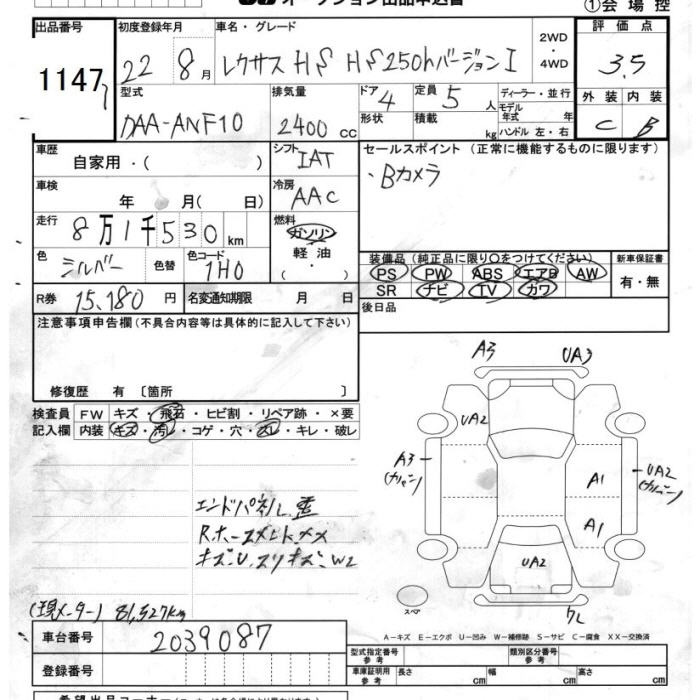 ①会場控
出品番号 初度登録年月 車名・グレード 2WD ・ 4WD 評価点
1147 22 8月 レクサス HS HS250hバージョンI 3.5
型式 排気量 ドア 4 定員 5人 ディーラー・並行 外装 内装
DAA-ANF10 2400 cc 形状 積載 kg モデル年式 年 ハンドル 左・右 C B
車歴 自家用・( ) シフト IAT セールスポイント (正常に機能するものに限ります)
車検 年 月( 日) 冷房 AAC ・Bカメラ
走行 8万1千530km 燃料 ガソリン 軽油 ・( )
色 シルバー 色替 色コード 1H0
装備品 (純正品に限り○をつけてください) 新車保証書
PS PW ABS エアB AW 有・無
SR ナビ TV カワ
R券 15,180円 名変通知期限 月 日 後日品
注意事項申告欄 (不具合内容等は具体的に記入して下さい)
修復歴 有 〔箇所 〕
検査員 FW キズ・飛石・ヒビ割・リペア跡・×要
記入欄 内装 キズ・汚レ・コゲ・穴・スレ・キレ・破レ
A3 UA3
UA2
A3 (カバー)
A1
UA2 (カバー)
A1
UA2
スペア
ワレ
エンドパネル歪
キズ・U、スリキズ・W2
(現メーター) 81,527km
A−キズ E−エクボ U−凹み W−補修跡 S−サビ C−腐食 XX−交換済
車台番号 2039087
型式指定番号 参考 類別区分番号 参考
登録番号
車庫証明用 参考 長さ cm 幅 cm 高さ cm